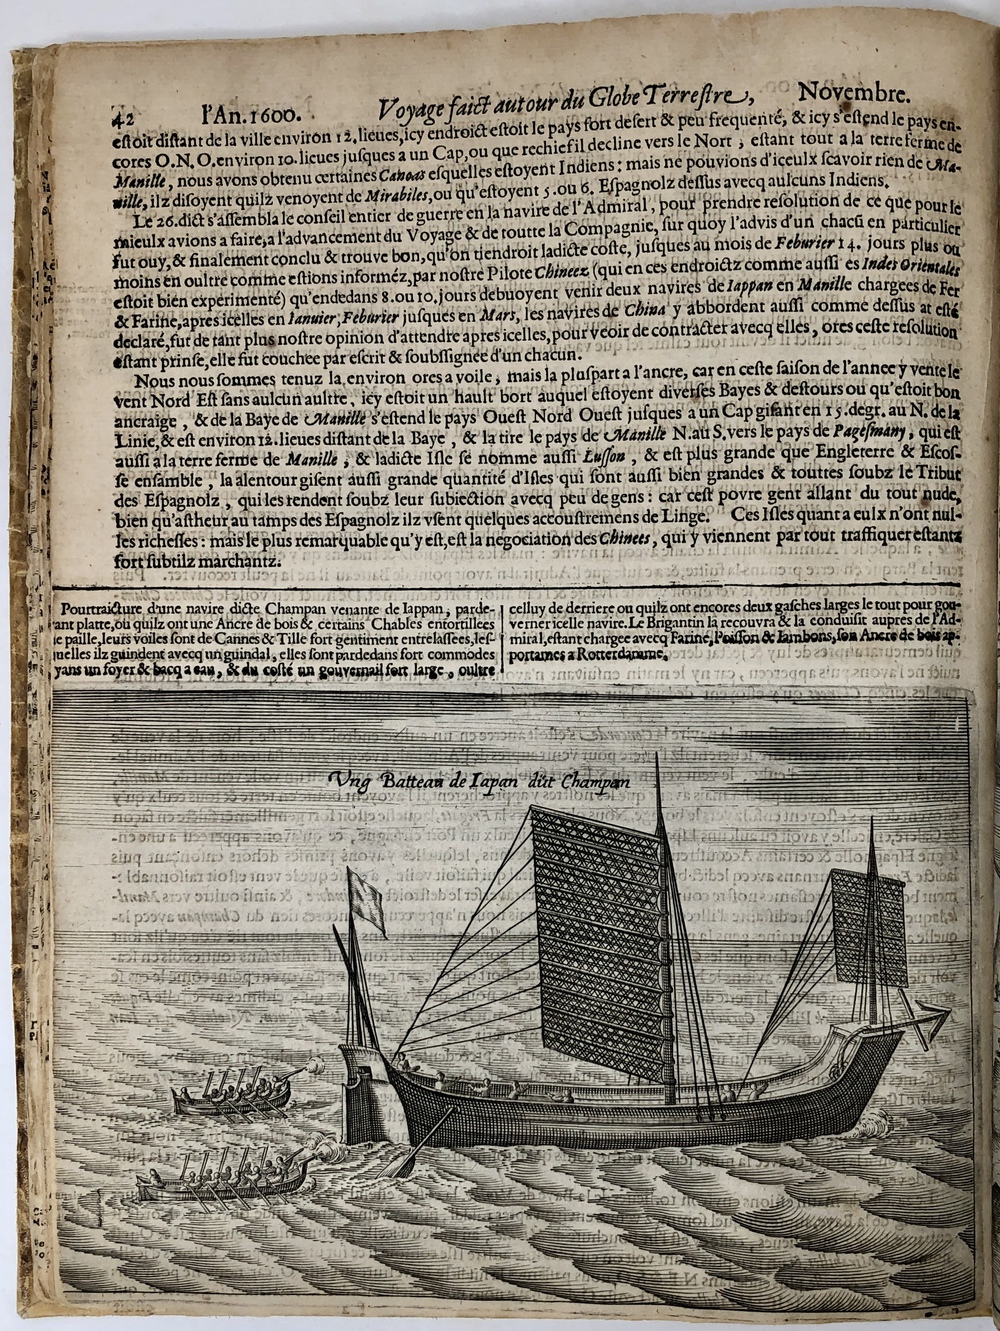 42 l'An. 1600. Voyage faict autour du Globe Terrestre, Novembre.
estoit distant de la ville environ 12, lieues, icy endroict estoit le pays fort desert & peu frequenté, & icy s'estend le pays en-
cores O. N. O. environ 10. lieues jusques a un Cap, ou que rechief il decline vers le Nort ; estant tout a la terre ferme de
Manille, nous avons obtenu certaines Canoas esquelles estoyent Indiens : mais ne pouvions d'iceulx scavoir rien de Ma-
nille, ilz disoyent quilz venoyent de Mirabiles, ou qu'estoyent 5. ou 6. Espagnolz dessus avecq aulcuns Indiens.
Le 26. dict s'assembla le conseil entier de guerre en la navire de l'Admiral, pour prendre resolution de ce que pour le
mieulx avions a faire, a l'advancement du Voyage & de toutte la Compagnie, sur quoy l'advis d'un chacũ en particulier
fut ouy, & finalement conclu & trouve bon, qu'on tiendroit ladicte coste, jusques au mois de Feburier 14. jours plus ou
moins en oultre comme estions informéz, par nostre Pilote Chineez (qui en ces endroictz comme aussi es Indes Orientales
estoit bien experimenté) qu'endedans 8. ou 10, jours debuoyent venir deux navires de Iappan en Manille chargees de Fer
& Farine, apres icelles en Ianuier, Feburier jusques en Mars, les navires de China y abbordent aussi comme dessus at esté
declaré, fut de tant plus nostre opinion d'attendre apres icelles, pour veoir de contracter avecq elles, ores ceste resolution
estant prinse, elle fut couchee par escrit & soubssignee d'un chacun.
Nous nous sommes tenuz la, environ ores a voile, mais la pluspart a l'ancre, car en ceste saison de l'annee ÿ vente le
vent Nord Est sans aulcun aultre, icy estoit un hault bort auquel estoyent diverses Bayes & destours ou qu'estoit bon
ancraige, & de la Baye de Manille s'estend le pays Ouest Nord Ouest jusques a un Cap gisant en 15. degr. au N. de la
Linie, & est environ 12. lieues distant de la Baye, & la tire le pays de Manille N. au S. vers le pays de Pagesmany, qui est
aussi a la terre ferme de Manille, & ladicte Isle se nomme aussi Lusson, & est plus grande que Engleterre & Escos-
se ensamble, la alentour gisent aussi grande quantité d'Isles qui sont aussi bien grandes & touttes soubz le Tribut
des Espagnolz, qui les tendent soubz leur subiection avecq peu de gens : car cest povre gent allant du tout nude,
bien qu'astheur au tamps des Espagnolz ilz vsent quelques accoustremens de Linge. Ces Isles quant a eulx n'ont nul-
les richesses : mais le plus remarquable qu'y est, est la negociation des Chinees, qui ÿ viennent par tout traffiquer estantz
fort subtilz marchantz.
Pourtraicture d'une navire dicte Champan venante de Iappan, parde-
ant platte, ou quilz ont une Ancre de bois & certains Chables entortillees
e paille, leurs voiles sont de Cannes & Tille fort gentiment entrelassees, les-
uelles ilz guindent avecq un guindal, elles sont pardedans fort commodes
yans un foyer & bacq a eau, & du costé un gouvernail fort large, oultre
celluy de derriere ou quilz ont encores deux gasches larges le tout pour gou-
verner icelle navire. Le Brigantin la recouvra & la conduisit aupres de l'Ad-
miral, estant chargee avecq Farine, Poisson & Iambons, son Ancre de bois ap-
portames a Rotterdamme.
Vng Batteau de Iapan dict Champan